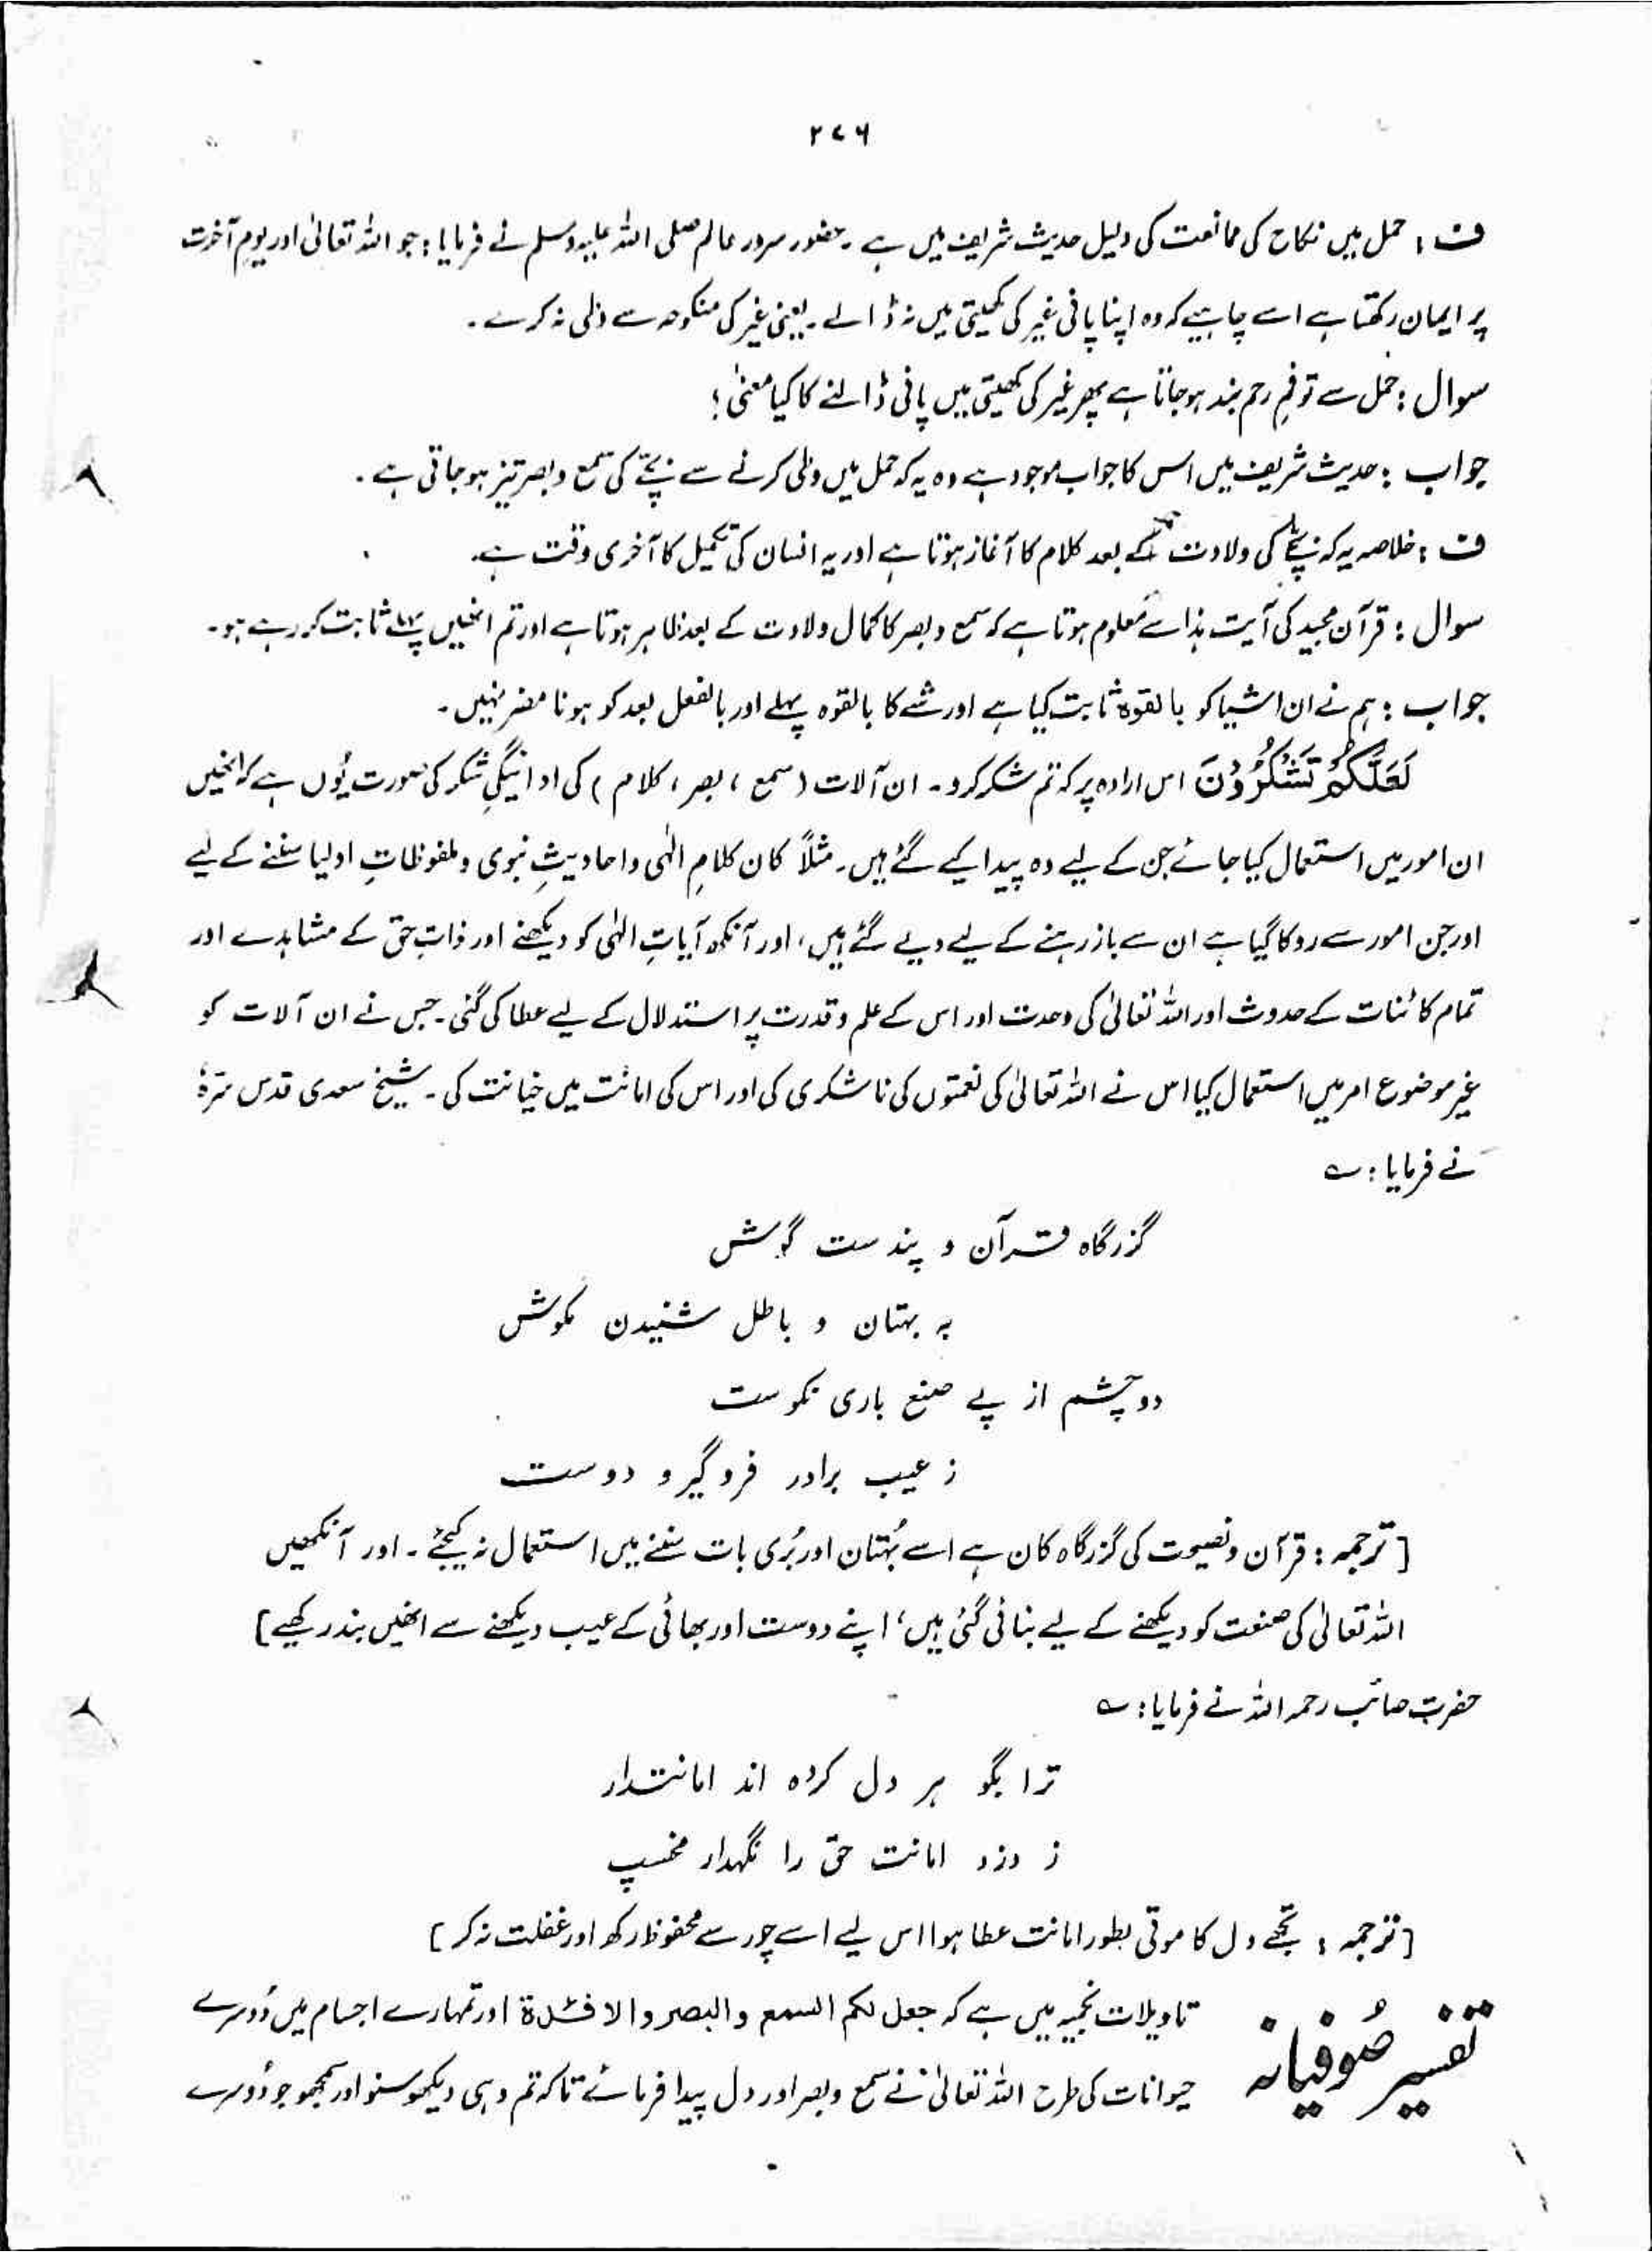 ۲۷۶
ف : حمل میں نکاح کی ممانعت کی دلیل حدیث شریف میں ہے ۔ حضور سرور عالم صلی اللہ علیہ وسلم نے فرمایا : جو اللہ تعالیٰ اور یومِ آخرت
پر ایمان رکھتا ہے اسے چاہیے کہ وہ اپنا پانی غیر کی کھیتی میں نہ ڈالے ۔ یعنی غیر کی منکوحہ سے وطی نہ کرے ۔
سوال : حمل سے تو فمِ رحم بند ہوجاتا ہے پھر غیر کی کھیتی میں پانی ڈالنے کا کیا معنیٰ ؟
جواب : حدیث شریف میں اس کا جواب موجود ہے وہ یہ کہ حمل میں وطی کرنے سے بچّے کی سمع و بصر تیز ہوجاتی ہے ۔
ف : خلاصہ یہ کہ بچے کی ولادت کے بعد کلام کا آغاز ہوتا ہے اور یہ انسان کی تکمیل کا آخری وقت ہے۔
سوال : قرآن مجید کی آیت ہذا سے معلوم ہوتا ہے کہ سمع و بصر کا کمال ولادت کے بعد ظاہر ہوتا ہے اور تم انھیں پہلے ثابت کر رہے ہو ۔
جواب : ہم نے ان اشیا کو بالقوۃ ثابت کیا ہے اور شے کا بالقوہ پہلے اور بالفعل بعد کو ہونا مضر نہیں ۔
لَعَلَّكُمْ تَشْكُرُوْنَ اس ارادہ پر کہ تم شکر کرو ۔ ان آلات (سمع ، بصر ، کلام) کی ادائیگیِ شکر کی صورت یُوں ہے کہ انھیں
ان امور میں استعمال کیا جائے جن کے لیے وہ پیدا کیے گئے ہیں ۔ مثلاً کان کلامِ الٰہی و احادیثِ نبوی و ملفوظاتِ اولیا سننے کے لیے
اور جن امور سے روکا گیا ہے ان سے باز رہنے کے لیے دیے گئے ہیں ، اور آنکھ آیاتِ الٰہی کو دیکھنے اور ذاتِ حق کے مشاہدے اور
تمام کائنات کے حدوث اور اللہ تعالیٰ کی وحدت اور اس کے علم و قدرت پر استدلال کے لیے عطا کی گئی ۔ جس نے ان آلات کو
غیر موضوع امر میں استعمال کیا اس نے اللہ تعالیٰ کی نعمتوں کی ناشکری کی اور اس کی امانت میں خیانت کی ۔ شیخ سعدی قدس سّرہٗ
نے فرمایا : ؎
گزرگاہ قرآن و پند ست گوش
بہ بہتان و باطل شنیدن مکوش
دو چشم از پے صنع باری نکوست
ز عیب برادر فرو گیر و دوست
[ ترجمہ : قرآن و نصیحت کی گزرگاہ کان ہے اسے بُہتان اور بُری بات سننے میں استعمال نہ کیجئے ۔ اور آنکھیں
اللہ تعالیٰ کی صنعت کو دیکھنے کے لیے بنائی گئی ہیں ، اپنے دوست اور بھائی کے عیب دیکھنے سے انھیں بند رکھیے ]
حضرت صائب رحمہ اللہ نے فرمایا : ؎
ترا بگو ہر دل کردہ اند امانتدار
ز دزد امانت حق را نگہدار مخسپ
[ ترجمہ : تجھے دل کا موتی بطور امانت عطا ہوا اس لیے اسے چور سے محفوظ رکھ اور غفلت نہ کر ]
تفسیر صُوفیانہ تاویلات نجمیہ میں ہے کہ جعل لکم السمع والبصر والافئدۃ اور تمہارے اجسام میں دُوسرے
حیوانات کی طرح اللہ تعالیٰ نے سمع و بصر اور دل پیدا فرمائے تاکہ تم وہی دیکھو سنو اور سمجھو جو دُوسرے